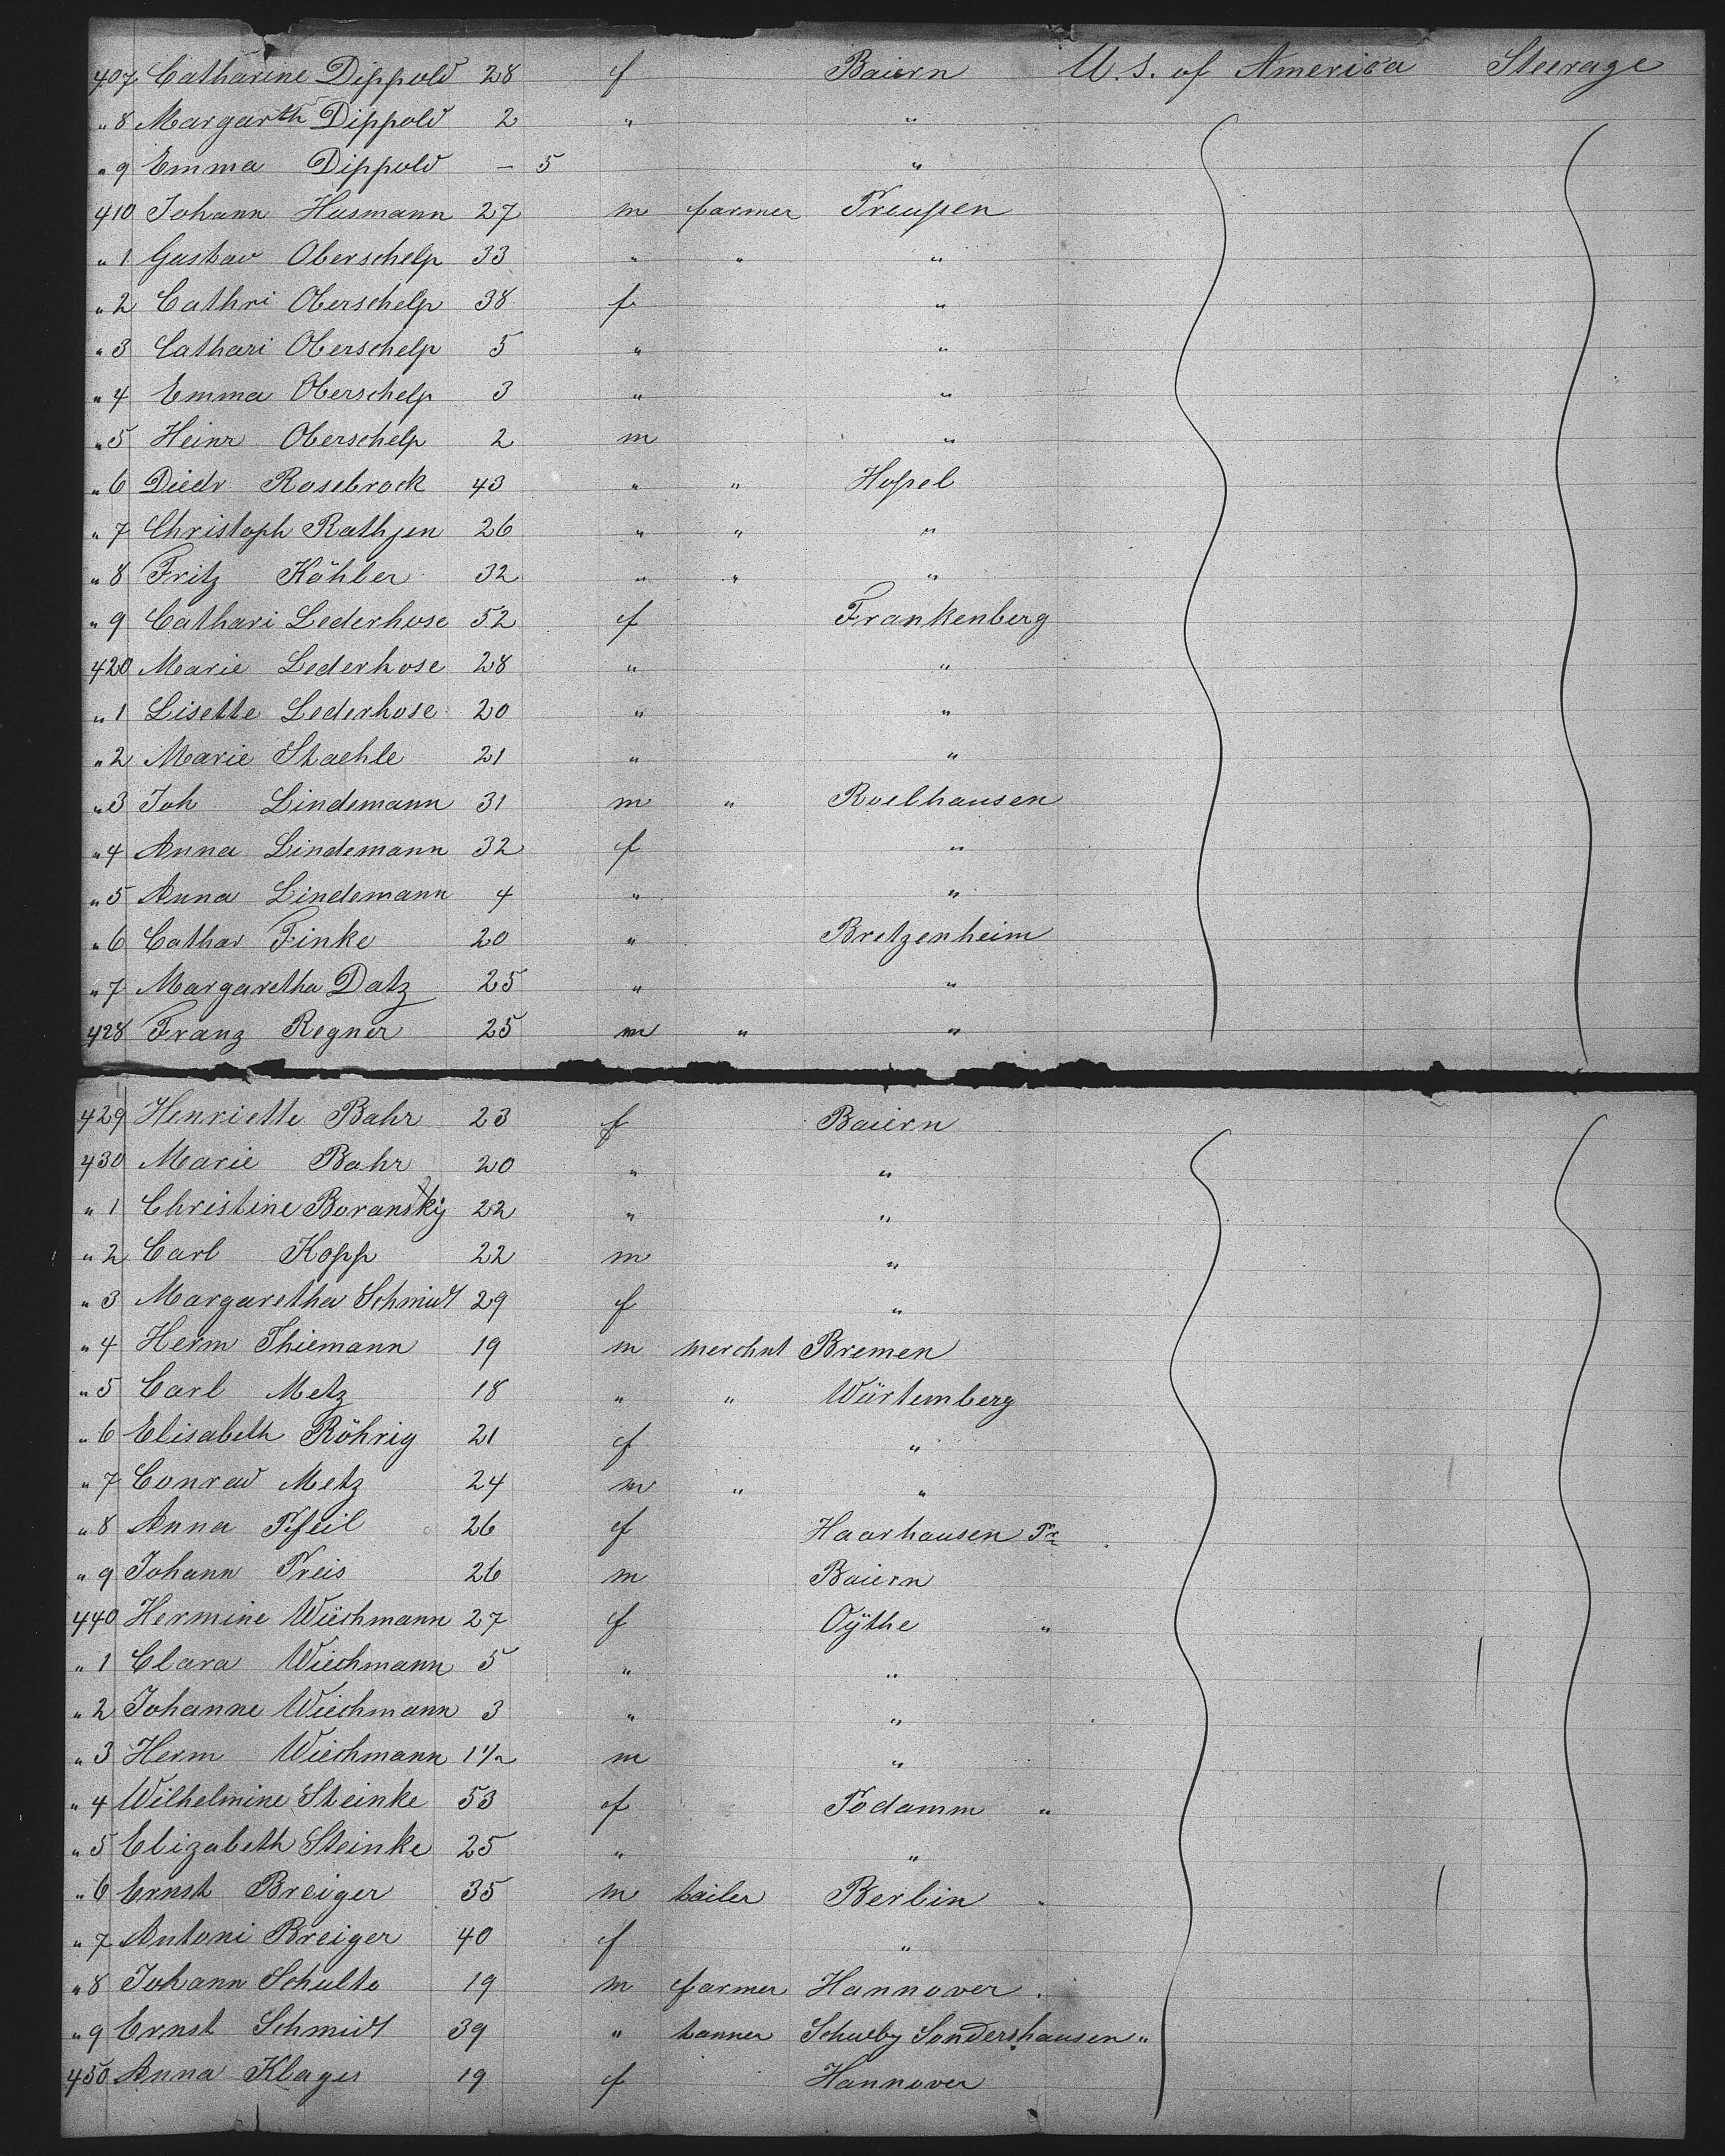 407 Catharine Dippold 28 f Baiern U. S. of America Steerage
" 8 Margarth Dippold 2 " "
" 9 Emma Dippold – 5 "
410 Johann Husmann 27 m farmer Preußen
" 1 Gustav Oberschelp 33 " " "
" 2 Cathri Oberschelp 38 f "
" 3 Cathari Oberschelp 5 " "
" 4 Emma Oberschelp 3 " "
" 5 Heinr Oberschelp 2 m "
" 6 Diedr Rosebrock 43 " " Hoßel
" 7 Christoph Rathjen 26 " " "
" 8 Fritz Köhler 32 " " "
" 9 Cathari Lederhose 52 f Frankenberg
420 Marie Lederhose 28 " "
" 1 Lisette Lederhose 20 " "
" 2 Marie Staehle 21 " "
" 3 Joh Lindemann 31 m " Roelhausen
" 4 Anna Lindemann 32 f "
" 5 Anna Lindemann 4 " "
" 6 Cathar Finke 20 " Bretzenheim
" 7 Margaretha Datz 25 " "
428 Franz Regner 25 m " "
429 Henriette Bahr 23 f Baiern
430 Marie Bahr 20 " "
" 1 Christine Boransky 22 " "
" 2 Carl Kopp 22 m "
" 3 Margaretha Schmidt 29 f "
" 4 Herm Thiemann 19 m merchnt Bremen
" 5 Carl Metz 18 " " Würtemberg
" 6 Elisabeth Röhrig 21 f "
" 7 Conrad Metz 24 m " "
" 8 Anna Pfeil 26 f Haarhausen Pr
" 9 Johann Preis 26 m Baiern
440 Hermine Wiechmann 27 f Oÿthe "
" 1 Clara Wiechmann 5 " "
" 2 Johanne Wiechmann 3 " "
" 3 Herm Wiechmann 1 1/2 m "
" 4 Wilhelmine Steinke 53 f Podamm "
" 5 Elizabeth Steinke 25 " "
" 6 Ernst Breiger 35 m tailer Berlin "
" 7 Antoni Breiger 40 f "
" 8 Johann Schulte 19 m farmer Hannover .
" 9 Ernst Schmidt 39 " tanner Sondershausen "
450 Anna Klages 19 f Hannover